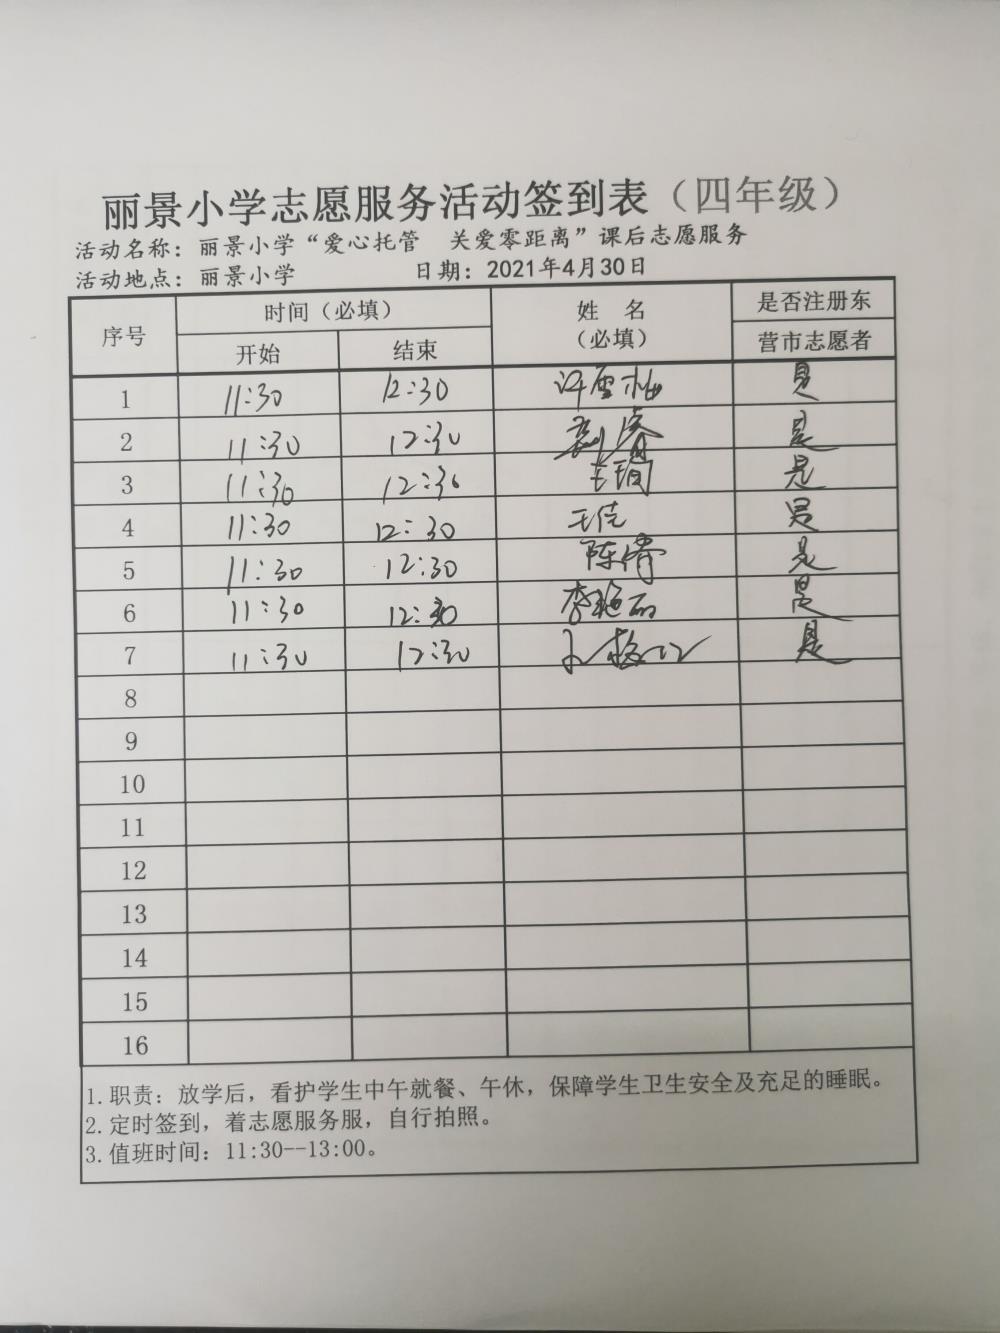 丽景小学志愿服务活动签到表（四年级）
活动名称：丽景小学“爱心托管 关爱零距离”课后志愿服务
活动地点：丽景小学 日期：2021年4月30日
序号 时间（必填） 姓 名（必填） 是否注册东营市志愿者
开始 结束
1 11:30 12:30 是
2 11:30 12:30 是
3 11:30 12:30 是
4 11:30 12:30 是
5 11:30 12:30 陈倩 是
6 11:30 12:30 李艳丽 是
7 11:30 12:30 是
8
9
10
11
12
13
14
15
16
1.职责：放学后，看护学生中午就餐、午休，保障学生卫生安全及充足的睡眠。
2.定时签到，着志愿服务服，自行拍照。
3.值班时间：11:30--13:00。